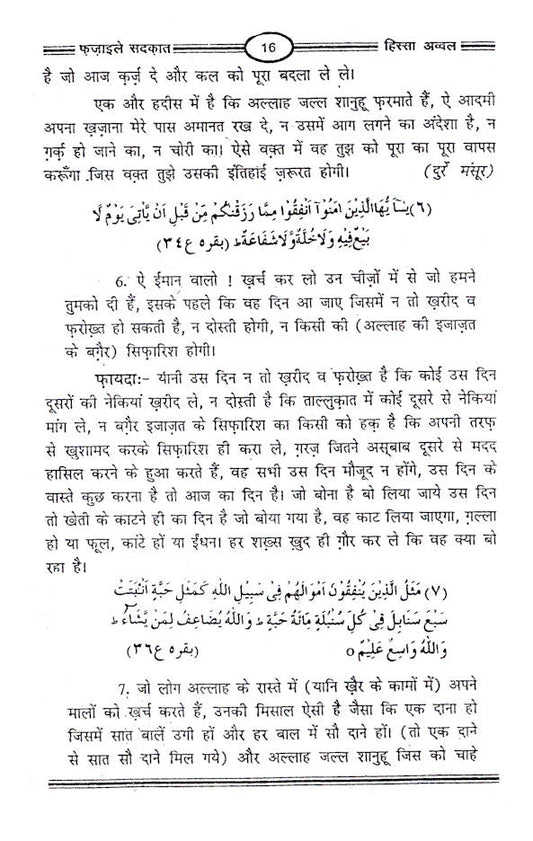 फज़ाइले सदकात 16 हिस्सा अव्वल
है जो आज कर्ज़ दे और कल को पूरा बदला ले ले।
एक और हदीस में है कि अल्लाह जल्ल शानुहू फ़रमाते हैं, ऐ आदमी
अपना ख़ज़ाना मेरे पास अमानत रख दे, न उसमें आग लगने का अंदेशा है, न
ग़र्क़ हो जाने का, न चोरी का। ऐसे वक़्त में वह तुझ को पूरा का पूरा वापस
करूँगा जिस वक़्त तुझे उसकी इंतिहाई ज़रूरत होगी। (दुर्रे मंसूर)
(٦) يٰۤاَيُّهَا الَّذِيْنَ اٰمَنُوْۤا اَنْفِقُوْا مِمَّا رَزَقْنٰكُمْ مِنْ قَبْلِ اَنْ يَّأْتِىَ يَوْمٌ لَّا
بَيْعٌ فِيْهِ وَلَا خُلَّةٌ وَّلَا شَفَاعَةٌ ط (بقره ع ٣٤)
6. ऐ ईमान वालो ! ख़र्च कर लो उन चीज़ों में से जो हमने
तुमको दी हैं, इसके पहले कि वह दिन आ जाए जिसमें न तो ख़रीद व
फ़रोख़्त हो सकती है, न दोस्ती होगी, न किसी की (अल्लाह की इजाज़त
के बग़ैर) सिफ़ारिश होगी।
फ़ायदा:- यानी उस दिन न तो ख़रीद व फ़रोख़्त है कि कोई उस दिन
दूसरों की नेकियां ख़रीद ले, न दोस्ती है कि ताल्लुक़ात में कोई दूसरे से नेकियां
मांग ले, न बग़ैर इजाज़त के सिफ़ारिश का किसी को हक़ है कि अपनी तरफ़
से ख़ुशामद करके सिफ़ारिश ही करा ले, ग़रज़ जितने अस्बाब दूसरे से मदद
हासिल करने के हुआ करते हैं, वह सभी उस दिन मौजूद न होंगे, उस दिन के
वास्ते कुछ करना है तो आज का दिन है। जो बोना है बो लिया जाये उस दिन
तो खेती के काटने ही का दिन है जो बोया गया है, वह काट लिया जाएगा, ग़ल्ला
हो या फूल, कांटे हों या ईंधन। हर शख़्स ख़ुद ही ग़ौर कर ले कि वह क्या बो
रहा है।
(٧) مَثَلُ الَّذِيْنَ يُنْفِقُوْنَ اَمْوَالَهُمْ فِىْ سَبِيْلِ اللّٰهِ كَمَثَلِ حَبَّةٍ اَنْبَتَتْ
سَبْعَ سَنَابِلَ فِىْ كُلِّ سُنْبُلَةٍ مِائَةُ حَبَّةٍ ط وَاللّٰهُ يُضَاعِفُ لِمَنْ يَّشَآءُ ط
وَاللّٰهُ وَاسِعٌ عَلِيْمٌ ٥ (بقره ع ٣٦)
7. जो लोग अल्लाह के रास्ते में (यानि ख़ैर के कामों में) अपने
मालों को ख़र्च करते हैं, उनकी मिसाल ऐसी है जैसा कि एक दाना हो
जिसमें सात बालें उगी हों और हर बाल में सौ दाने हों। (तो एक दाने
से सात सौ दाने मिल गये) और अल्लाह जल्ल शानुहू जिस को चाहे